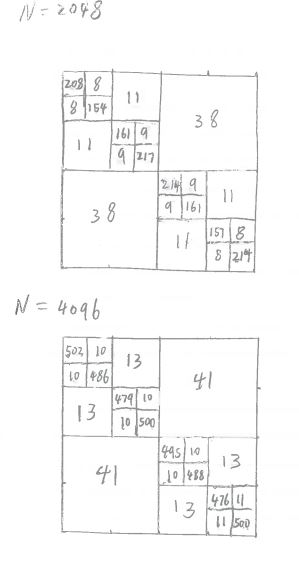 N=2048
208 8
8 154
11
38
11
161 9
9 217
38
214 9
9 161
11
11
157 8
8 214
N=4096
502 10
10 486
13
41
13
479 10
10 500
41
495 10
10 488
13
13
476 11
11 500